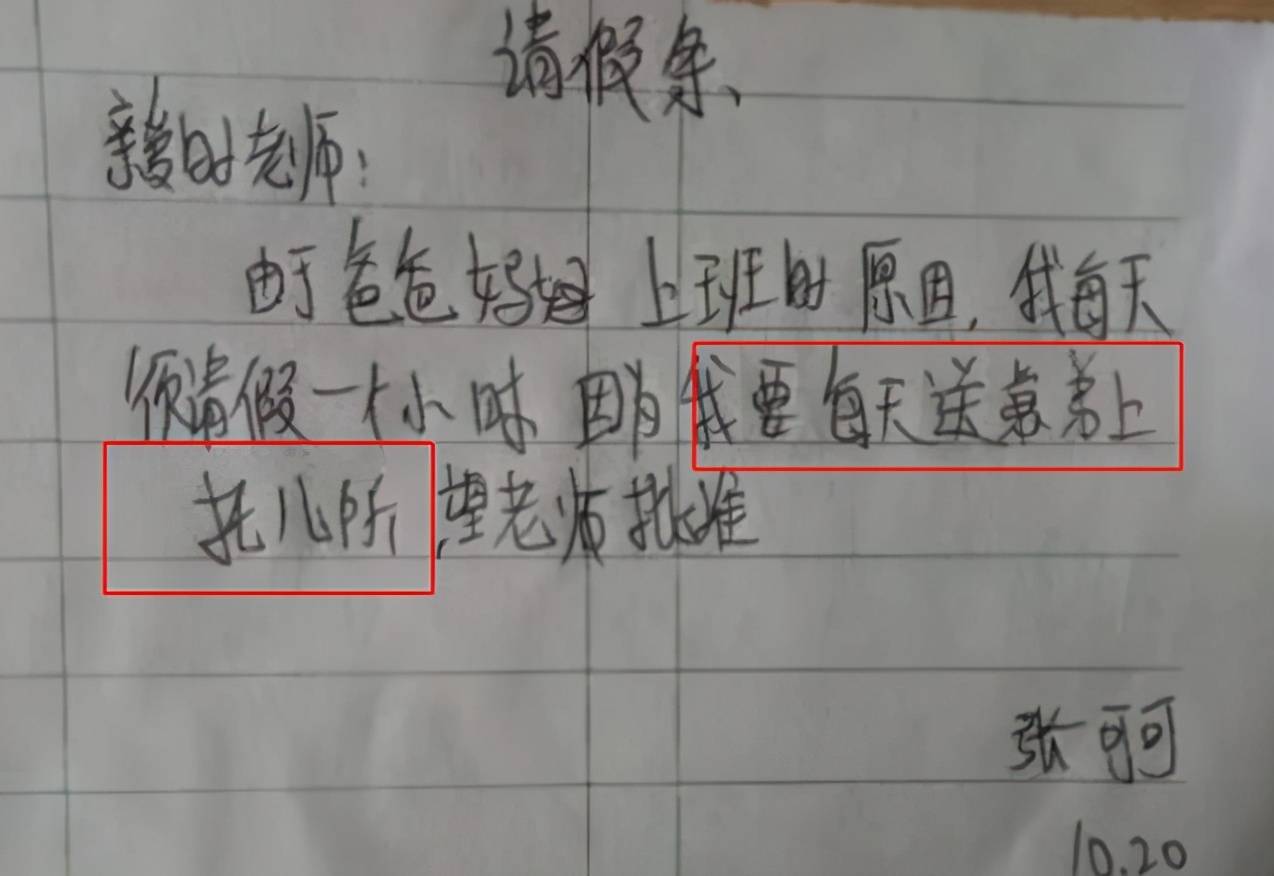 请假条、
亲爱的老师:
由于爸爸妈妈上班的原因,我每天
须请假一个小时 因为我要每天送弟弟上
托儿所,望老师批准
张可可
10.20